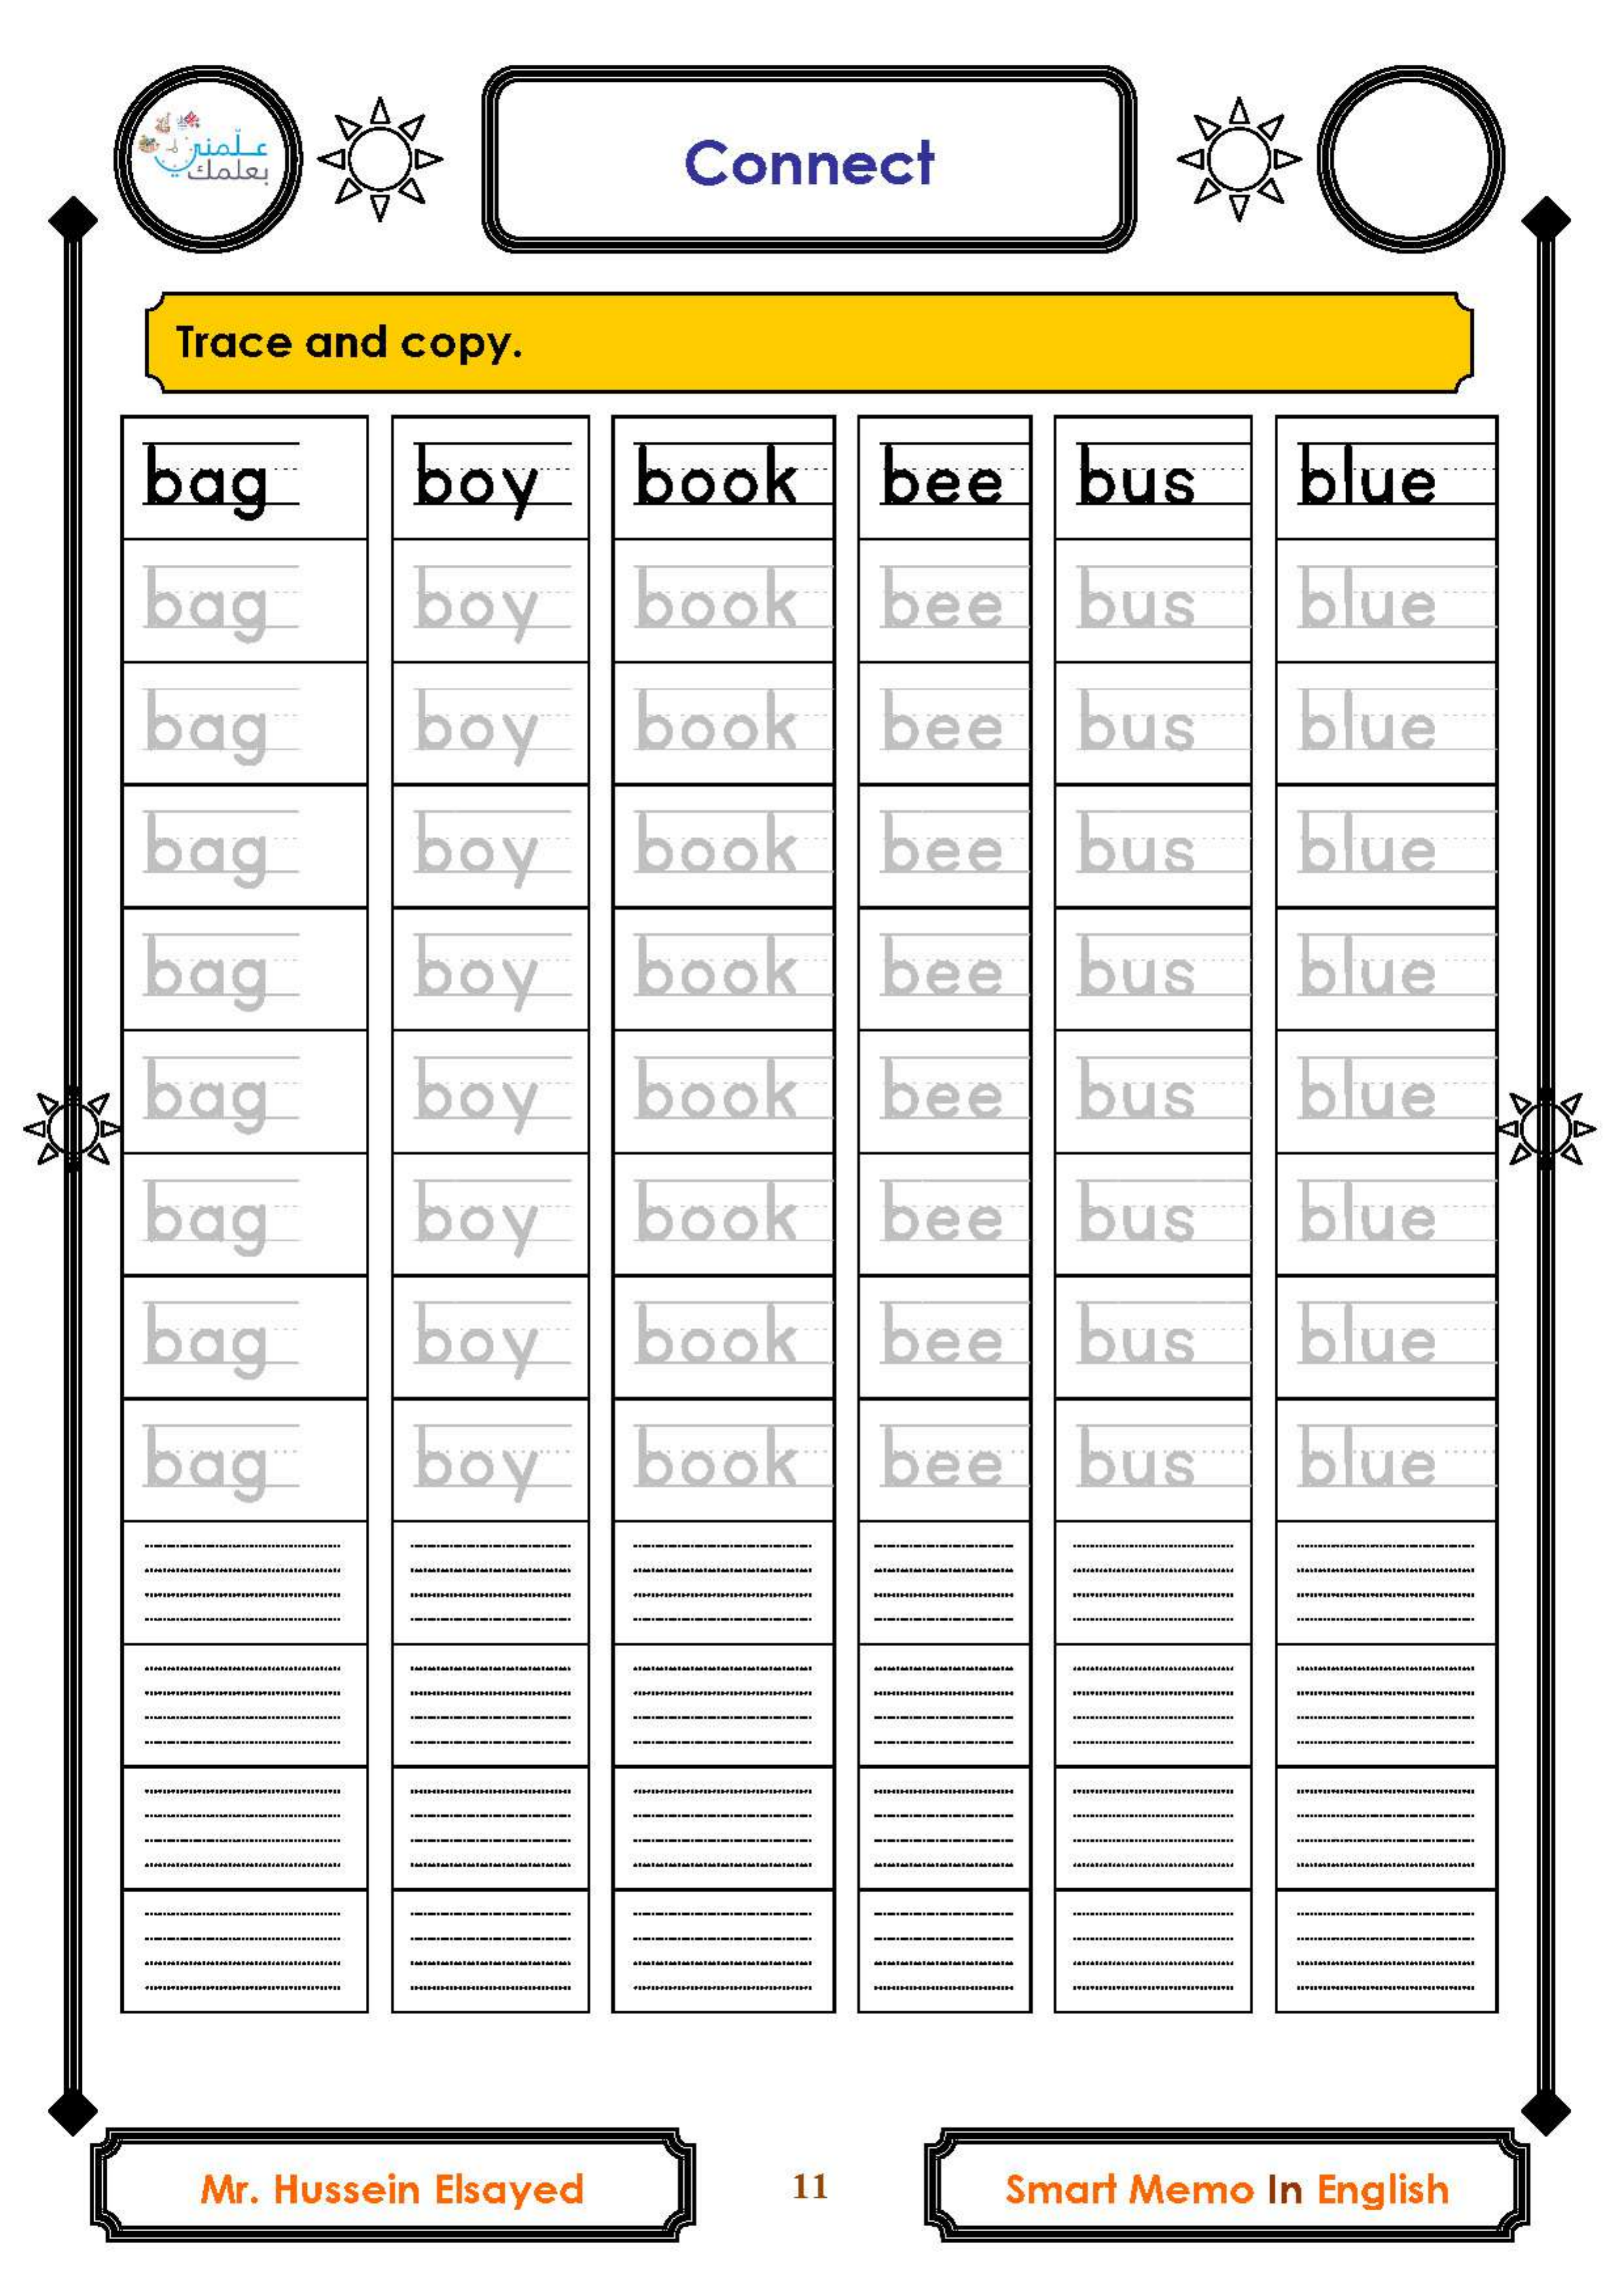 علّمني
بعلمك
Connect
Trace and copy.
bag boy book bee bus blue
bag boy book bee bus blue
bag boy book bee bus blue
bag boy book bee bus blue
bag boy book bee bus blue
bag boy book bee bus blue
bag boy book bee bus blue
bag boy book bee bus blue
bag boy book bee bus blue
Mr. Hussein Elsayed 11 Smart Memo In English